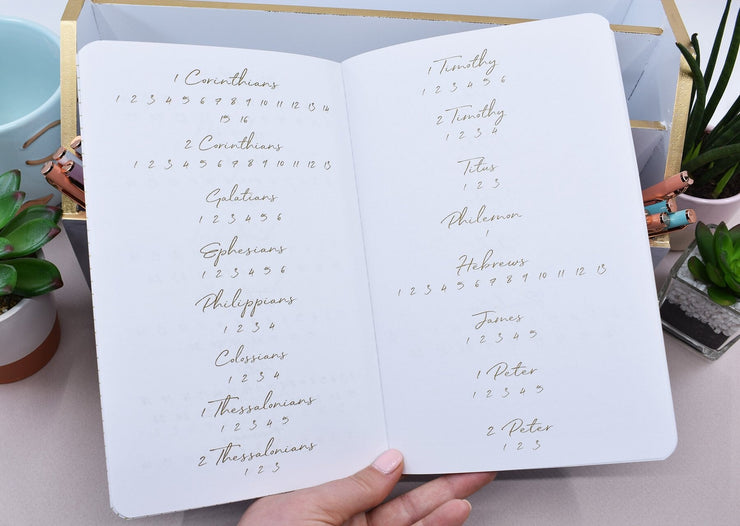 1 Corinthians
1 2 3 4 5 6 7 8 9 10 11 12 13 14
15 16
2 Corinthians
1 2 3 4 5 6 7 8 9 10 11 12 13
Galatians
1 2 3 4 5 6
Ephesians
1 2 3 4 5 6
Philippians
1 2 3 4
Colossians
1 2 3 4
1 Thessalonians
1 2 3 4 5
2 Thessalonians
1 2 3
1 Timothy
1 2 3 4 5 6
2 Timothy
1 2 3 4
Titus
1 2 3
Philemon
1
Hebrews
1 2 3 4 5 6 7 8 9 10 11 12 13
James
1 2 3 4 5
1 Peter
1 2 3 4 5
2 Peter
1 2 3